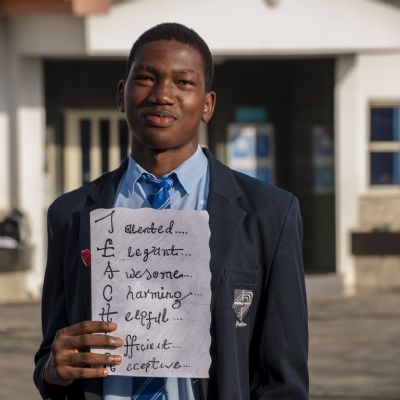 Talented....
Elegant...
Awesome...
Charming...
Helpful...
Efficient...
Receptive...